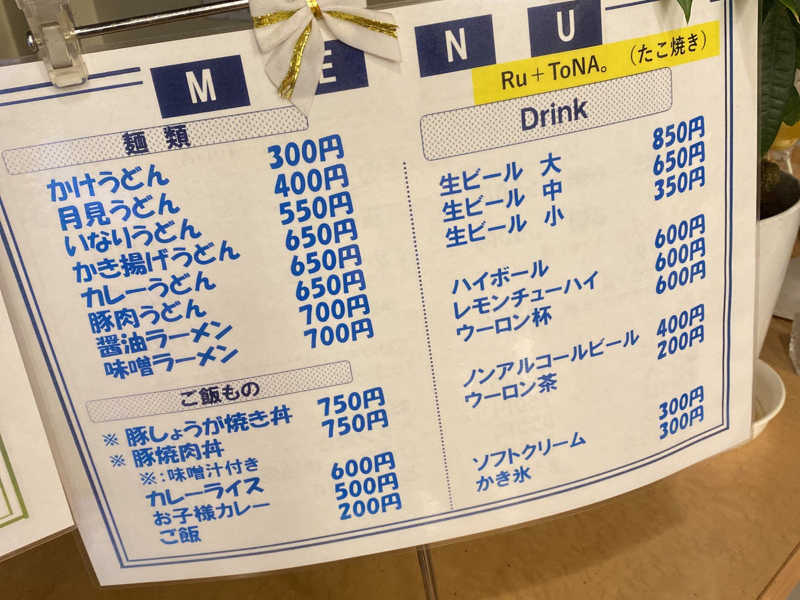 MENU
Ru+ToNA。(たこ焼き)
麺類
かけうどん 300円
月見うどん 400円
いなりうどん 550円
かき揚げうどん 650円
カレーうどん 650円
豚肉うどん 650円
醤油ラーメン 700円
味噌ラーメン 700円
ご飯もの
※ 豚しょうが焼き丼 750円
※ 豚焼肉丼 750円
※:味噌汁付き
カレーライス 600円
お子様カレー 500円
ご飯 200円
Drink
生ビール 大 850円
生ビール 中 650円
生ビール 小 350円
ハイボール 600円
レモンチューハイ 600円
ウーロン杯 600円
ノンアルコールビール 400円
ウーロン茶 200円
ソフトクリーム 300円
かき氷 300円